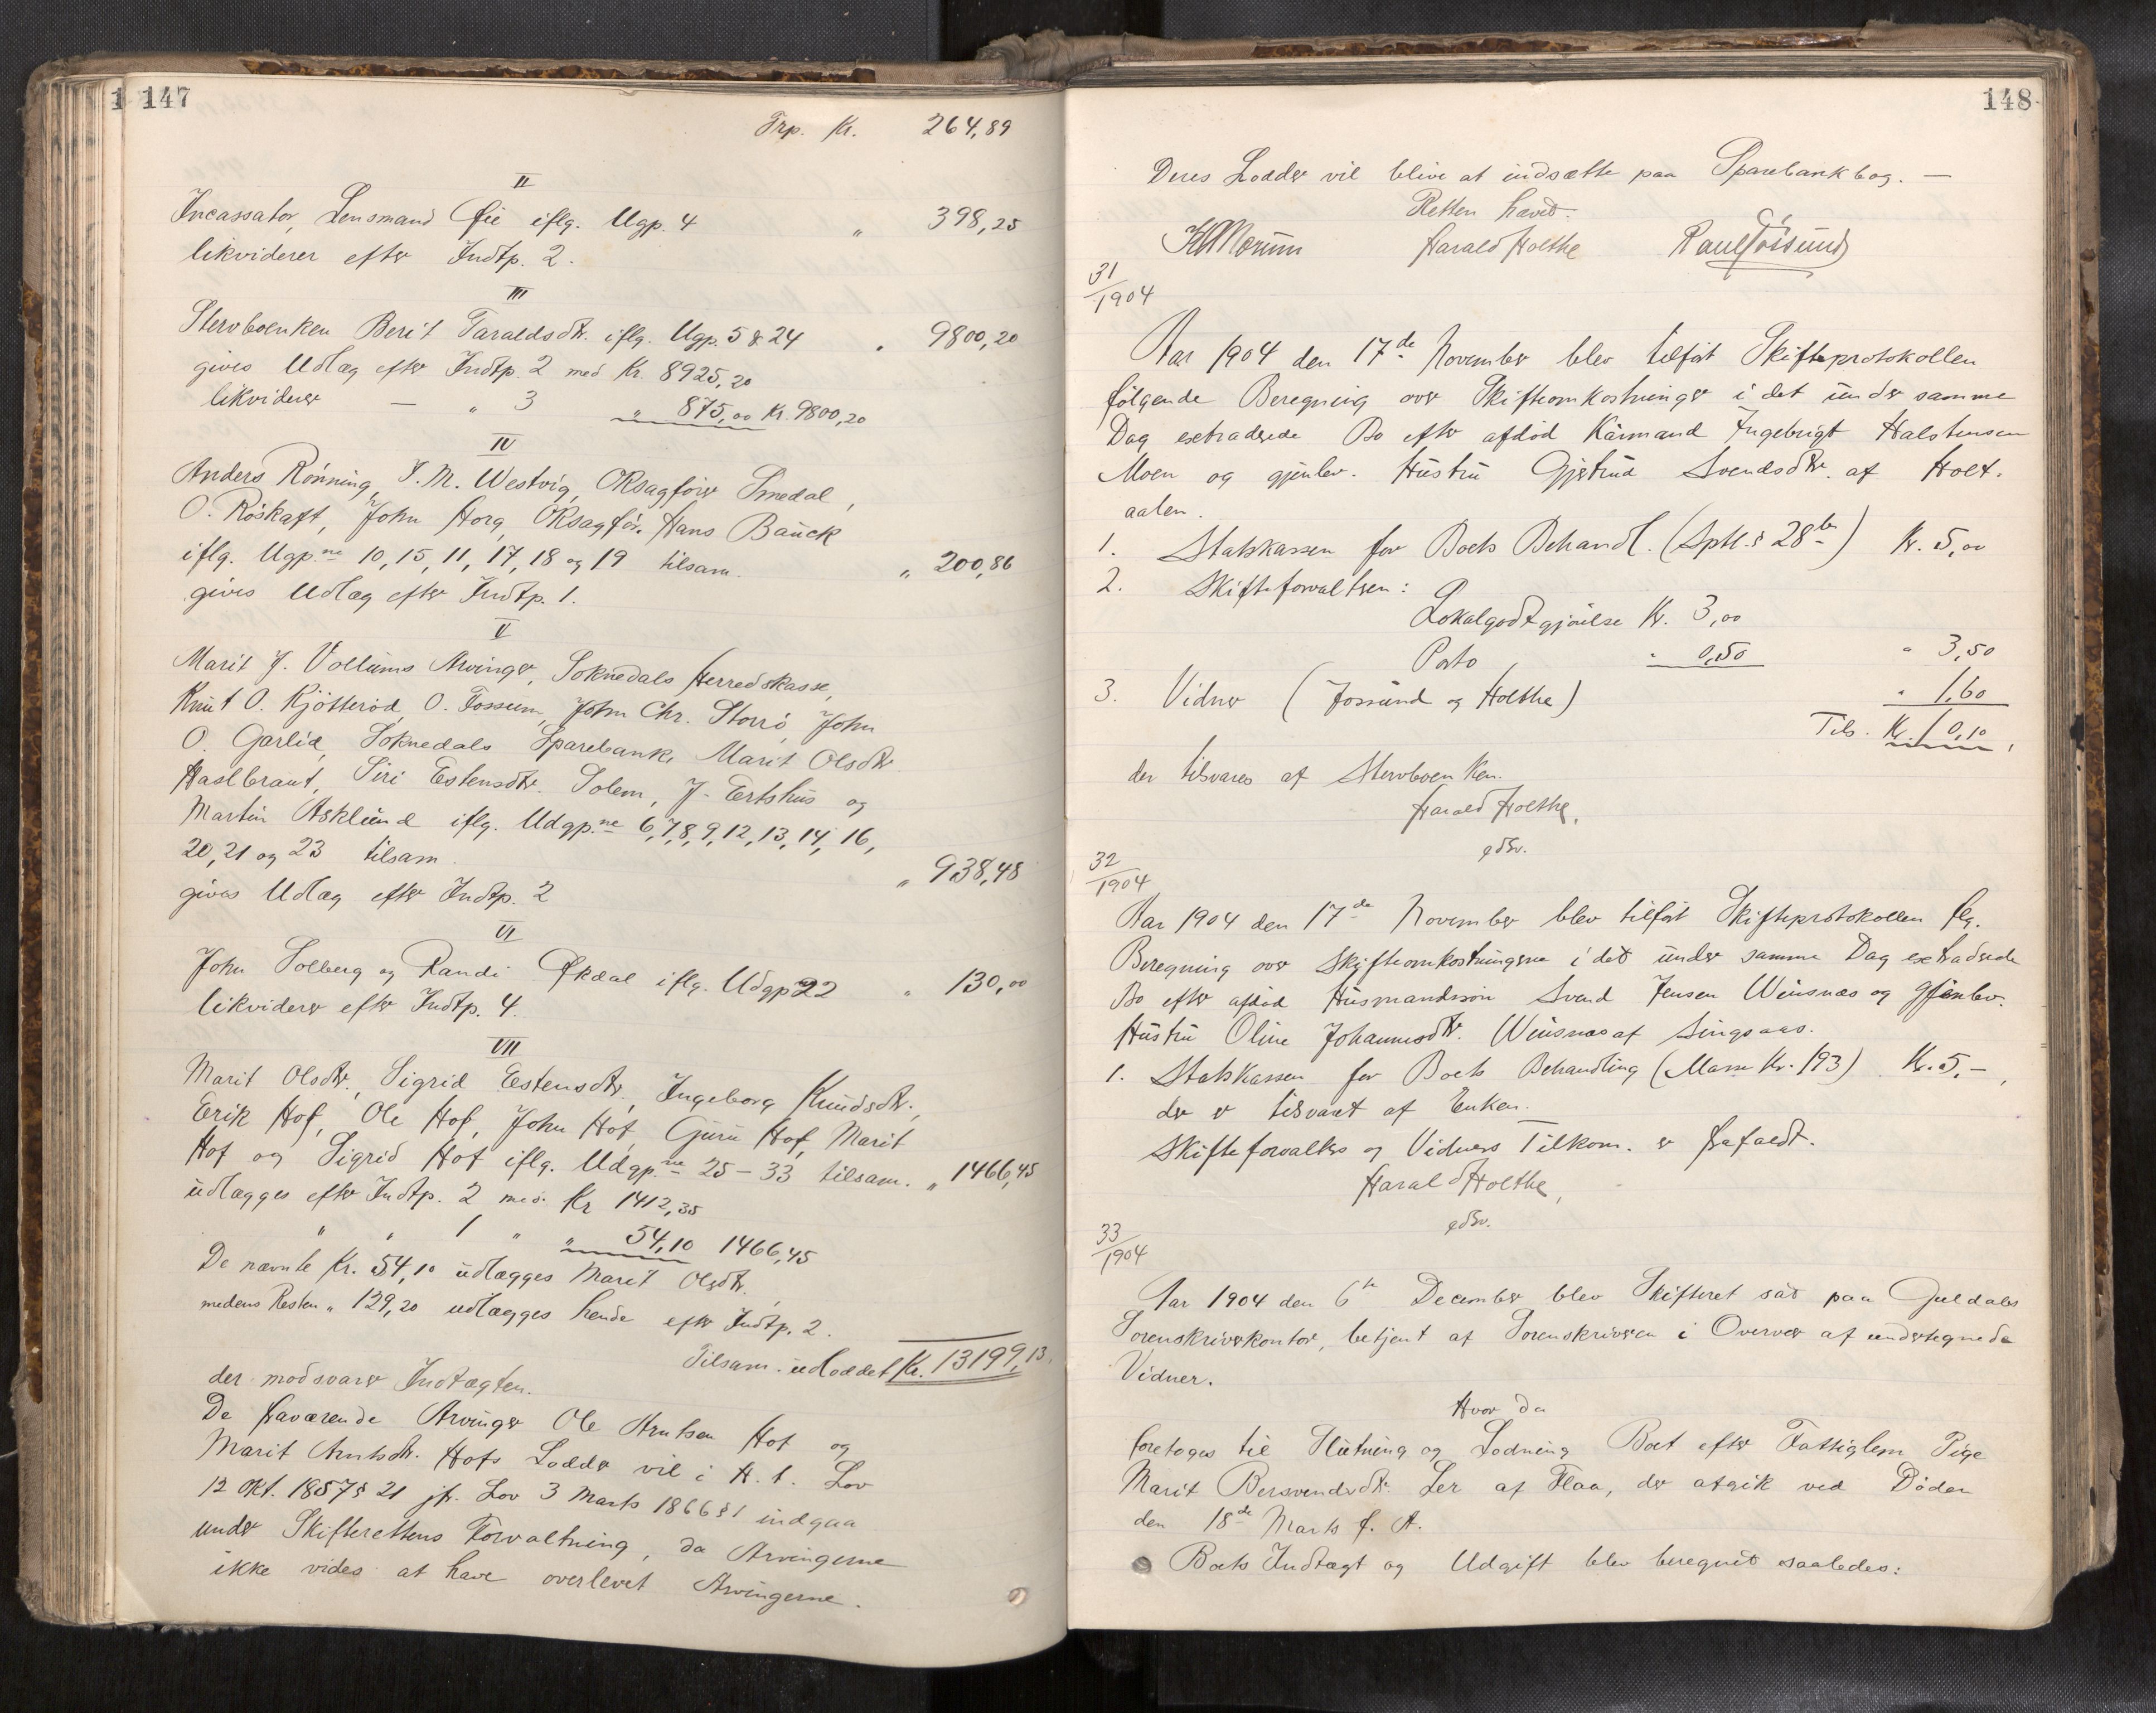 147
Trp. Kr. 264,89
II
Incassator, Lensmand Øie iflg. Ugp. 4 " 398,25
likviderer efter Indtp. 2.
III
Stervboenken Berit Taraldsdtr. iflg. Ugp. 5 & 24 " 9800,20
gives Udlæg efter Indtp. 2 med Kr. 8925,20
likviderer — " 3 " 875,00 Kr. 9800,20
IV
Anders Rønning, J. M. Westvig, ORsagfører Smedal,
O. Røskaft, John Horg, ORsagfør. Hans Bauck
iflg. Ugp.ne 10, 15, 11, 17, 18 og 19 tilsam. " 200,86
gives Udlæg efter Indtp. 1.
V
Marit J. Vollums Arvinger, Soknedals Herredskasse,
Knut O. Kjøtterød, O. Fossum, John Chr. Storrø, John
O. Garlid, Soknedals Sparebank, Marit Olsdtr
Haslbraut, Siri Estensdtr. Solem, J. Ertshus og
Martin Asklund iflg. Udgp.ne 6, 7, 8, 9, 12, 13, 14, 16,
20, 21 og 23 tilsam. " 938,48
gives Udlæg efter Indtp. 2
VI
John Solberg og Randi Økdal iflg. Udgp 22 " 130,00
likviderer efter Indtp. 4.
VII
Marit Olsdtr., Sigrid Estensdtr., Ingeborg Knudsdtr.,
Erik Hof, Ole Hof, John Hof, Guru Hof, Marit
Hof og Sigrid Hof iflg. Udgp.ne 25 – 33 tilsam. " 1466,45
udlægges efter Indtp. 2 med Kr 1412,35
" " 1 " " 54,10 1466,45
De nævnte Kr. 54,10 udlægges Marit Olsdtr.,
medens Resten " 129,20 udlægges hende efter Indtp. 2.
Tilsam. udloddet Kr. 13199,13,
der modsvarer Indtægten.
De fraværende Arvinger Ole Arntsen Hof og
Marit Arntsdtr. Hofs Lodder vil i H. t. Lov
12 Okt. 1857 § 21 jfr. Lov 3 Marts 1866 § 1 indgaa
under Skifterettens Forvaltning, da Arvingerne
ikke vides at have overlevet Arvingerne.
148
Deres Lodder vil blive at indsætte paa Sparebankbog. —
Retten hævet.
Harald Holthe Paul Jøssund
31/1904
Aar 1904 den 17de November blev tilført Skifteprotokollen
følgende Beregning over Skifteomkostninger i det under samme
Dag extraderede Bo efter afdød Kaarmand Ingebrigt Halstensen
Moen og gjenlev. Hustru Gjertrud Svendsdtr. af Holt-
aalen.
1. Statskassen for Boets Behandl. (Sptl. § 28 ) Kr. 5,00
2. Skifteforvalteren:
Lokalgodtgjørelse Kr. 3,00
Porto " 0,50 " 3,50
3. Vidner (Jøssund og Holthe) " 1,60
Tils. Kr. 10,10,
der tilsvares af Stervboenken.
Harald Holthe,
edsv.
32/1904
Aar 1904 den 17de November blev tilført Skifteprotokollen flg.
Beregning over Skifteomkostningerne i det under samme Dag extraderede
Bo efter afdød Husmandssøn Svend Jensen Winsnæs og gjenlev.
Hustru Oline Johannesdtr. Winsnæs af Singsaas.
1. Statskassen for Boets Behandling (Masse Kr. 193) Kr. 5,–,
der er tilsvaret af Enken.
Skifteforvalters og Vidners Tilkom. er frafaldt.
Harald Holthe,
edsv.
33/1904
Aar 1904 den 6te December blev Skifteret sat paa Guldals
Sorenskriverkontor, betjent af Sorenskriveren i Overvær af undertegnede
Vidner.
Hvor da
foretoges til Slutning og Lodning Boet efter Fattiglem Pige
Marit Bersvendsdtr. Ler af Flaa, der afgik ved Døden
den 18de Marts f. A.
Boets Indtægt og Udgift blev beregnet saaledes: